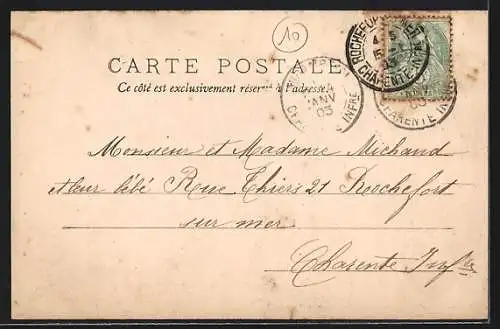 10
CARTE POSTALE
Ce côté est exclusivement réservé à l'adresse
ROCHEFORT
CHARENTE-INFRE
JANV
03
CHARENTE INFRE
Monsieur et Madame Michaud
et leur bébé Rue Thiers 21 Rochefort
sur mer
Charente Infre